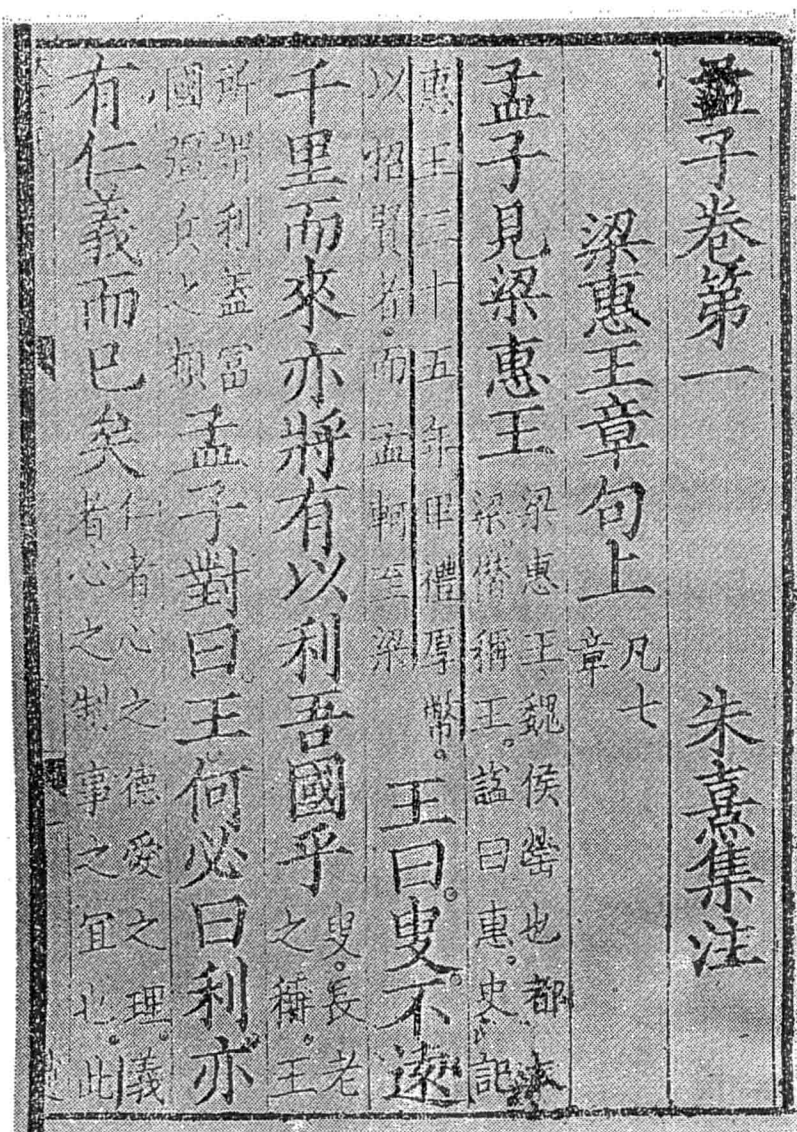 孟子卷第一 朱熹集注
梁惠王章句上 凡七章
孟子見梁惠王 梁惠王、魏侯罃也都大梁僭稱王。謚曰惠。史記
惠王三十五年卑禮厚幣。以招賢者。而孟軻至梁 王曰。叟。不遠
千里而來亦將有以利吾國乎 叟。長老之稱。王
所謂利蓋富國彊兵之類 孟子對曰。王何必曰利。亦
有仁義而已矣 仁者心之德愛之理。義者心之制事之宜也。此